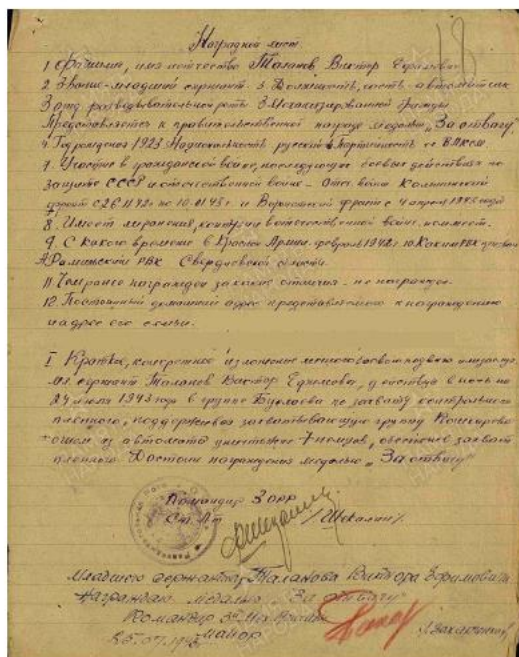 Наградной лист
1. Фамилия, имя и отчество Таланов Виктор
2. Звание - младший сержант 3. Должность, часть автоматчик
3 отд. разведывательной роты 3 Механизированной бригады
Представляется к правительственной награде медаль „За отвагу"
4. Год рождения 1923 Национальность русский Партийность чл. ВЛКСМ
7. Участие в гражданской войне, последующих боевых действиях по
защите СССР и отечественной войне - Отеч. война Калининский
фронт с по 10.01.43 г. и Воронежский фронт с 4 1943 года
8. Имеет ли ранения, контузии в отечественной войне, не имеет.
9. С какого времени в Красной Армии февраль 1942 г. 10. Каким РВК призван
РВК Свердловской области.
11. Чем ранее награжден за какие отличия - не награжден.
12. Постоянный домашний адрес представляемого к награждению
и адрес его семьи.
I Краткое, конкретное изложение личного боевого подвига или заслуг.
мл. сержант Таланов Виктор действуя в ночь на
24 июля 1943 года в группе по захвату контрольного
пленного, поддерживая захватывающую группу
огнем из автомата уничтожил 7 немцев, обеспечив захват
пленного. Достоин награждения медалью „За отвагу"
Командир 3 орр
Ст. Л-т /Шекалин/.
Младшего сержанта Таланова Виктора Ефимовича
Награждаю медалью За отвагу
Командир 3й Мех. бригады
Майор